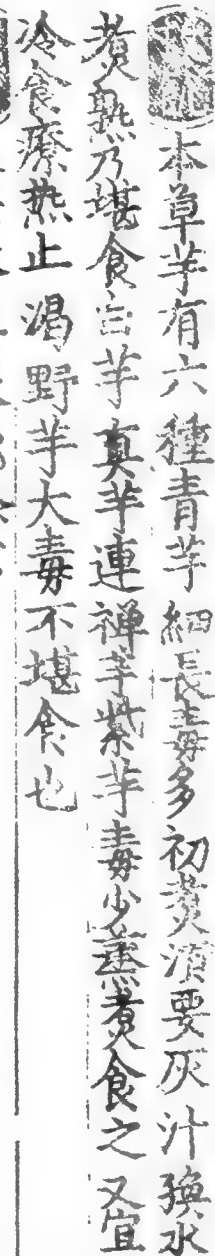 本草芋有六種青芋細長毒多初煑須要灰汁換水
煑熟乃堪食白芋真芋連禪芋紫芋毒少蒸煑食之又宜
冷食療热止渴野芋大毒不堪食也